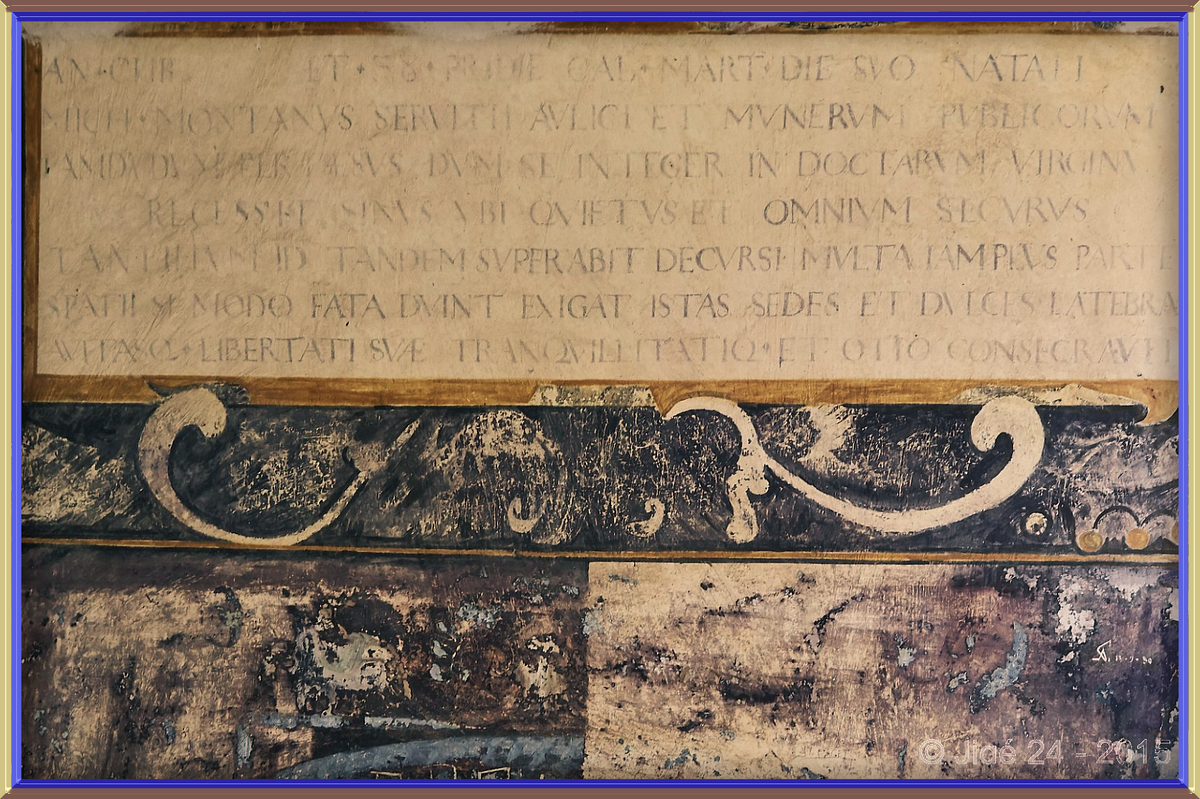 ET PRIDIE CAL · MART · DIE SVO NATALI
MONTANVS SERVITII AVLICI ET MVNERVM PVBLICORVM
DVM SE INTEGER IN DOCTARVM VIRGINV
RECESSIT SINVS VBI QVIETVS ET OMNIVM SECVRVS
TANDEM SVPERABIT DECVRSI MVLTA IAM PLVS PARTE
SPATII SI MODO FATA DVINT EXIGAT ISTAS SEDES ET DVLCES LATEBRA
AVITASQ · LIBERTATI SVÆ TRANQVILLITATIQ · ET OTIO CONSECRAVIT
© Jidé 24 - 2015